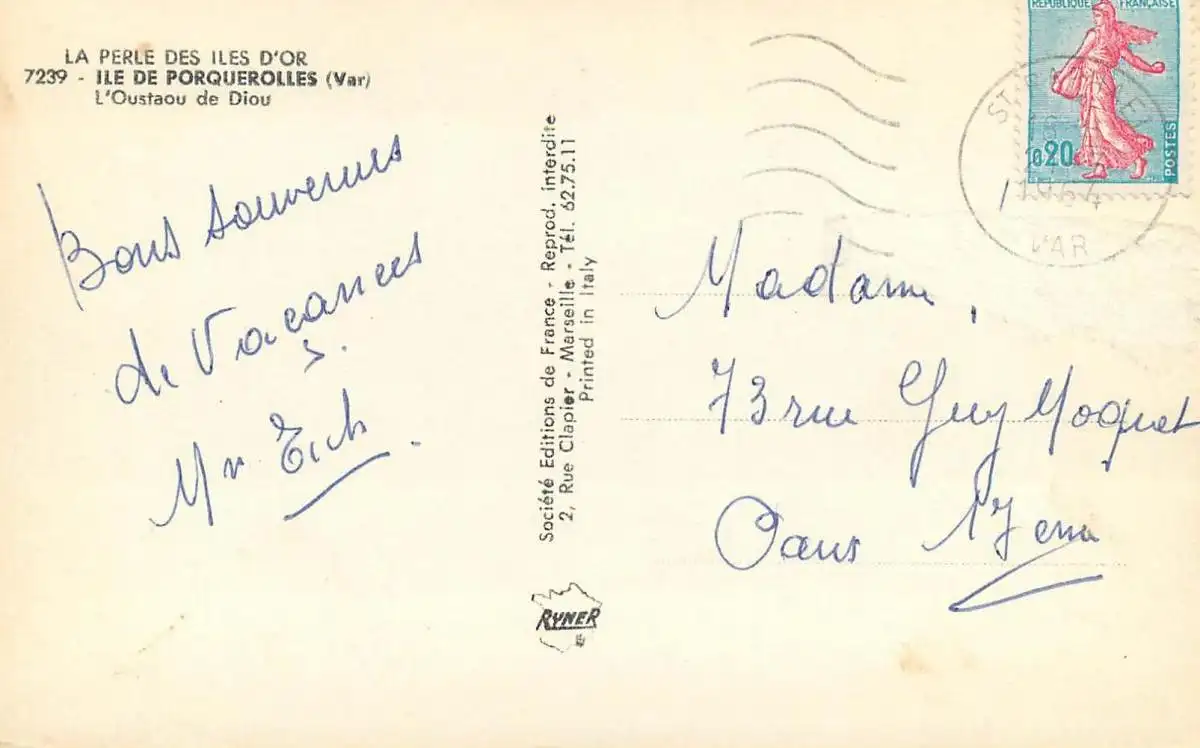 LA PERLE DES ILES D'OR
7239 - ILE DE PORQUEROLLES (Var)
L'Oustaou de Diou
Bons souvenirs
de Vacances
Mr Eich
Société Editions de France - Reprod. interdite
2, Rue Clapier - Marseille - Tél. 62.75.11
Printed in Italy
RYNER
REPUBLIQUE FRANÇAISE
0,20
POSTES
VAR
Madame,
73 rue Guy Moquet
Paris 17eme